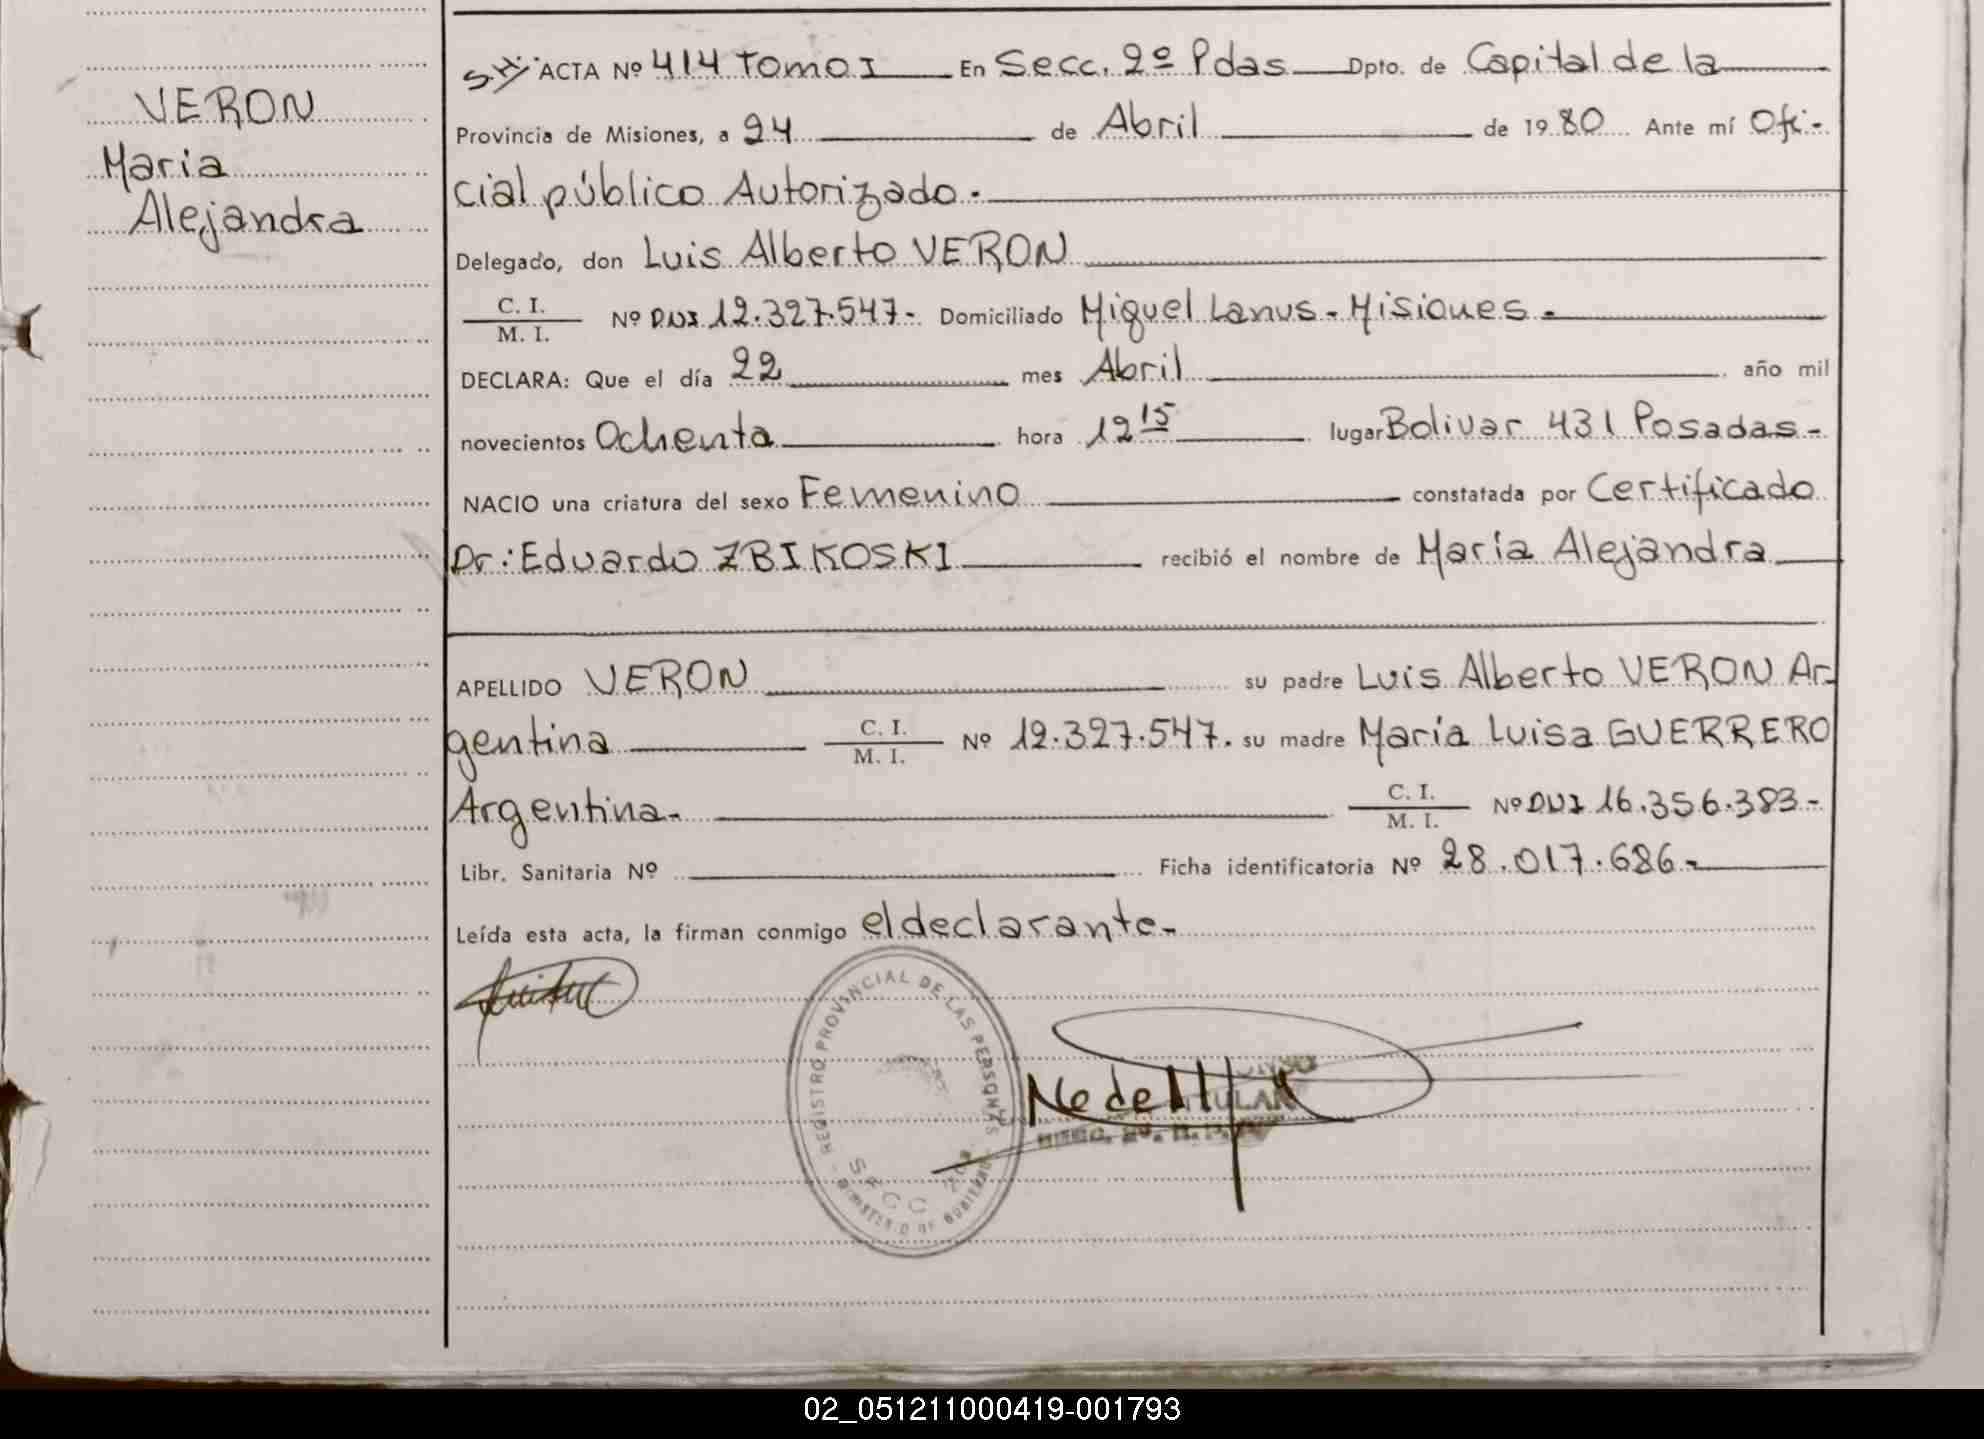 VERON
Maria
Alejandra
S.H. ACTA Nº 414 Tomo I En Secc. 2º Pdas Dpto. de Capital de la
Provincia de Misiones, a 24 de Abril de 1980 Ante mí Ofi-
cial público Autorizado.
Delegado, don Luis Alberto VERON
C. I.
M. I. Nº DNI 12.327.547- Domiciliado Miguel Lanus - Misiones.
DECLARA: Que el día 22 mes Abril año mil
novecientos Ochenta hora 12 15 lugar Bolivar 431 Posadas-
NACIO una criatura del sexo Femenino constatada por Certificado
Dr: Eduardo ZBIKOSKI recibió el nombre de María Alejandra
APELLIDO VERON su padre Luis Alberto VERON Ar-
gentina C. I. M. I. Nº 12.327.547. su madre María Luisa GUERRERO
Argentina- C. I. M. I. Nº DNI 16.356.383-
Libr. Sanitaria Nº Ficha identificatoria Nº 28.017.686-
Leída esta acta, la firman conmigo el declarante-
REGISTRO PROVINCIAL DE LAS PERSONAS
SECC 2da
MINISTERIO DE GOBIERNO
02_051211000419-001793